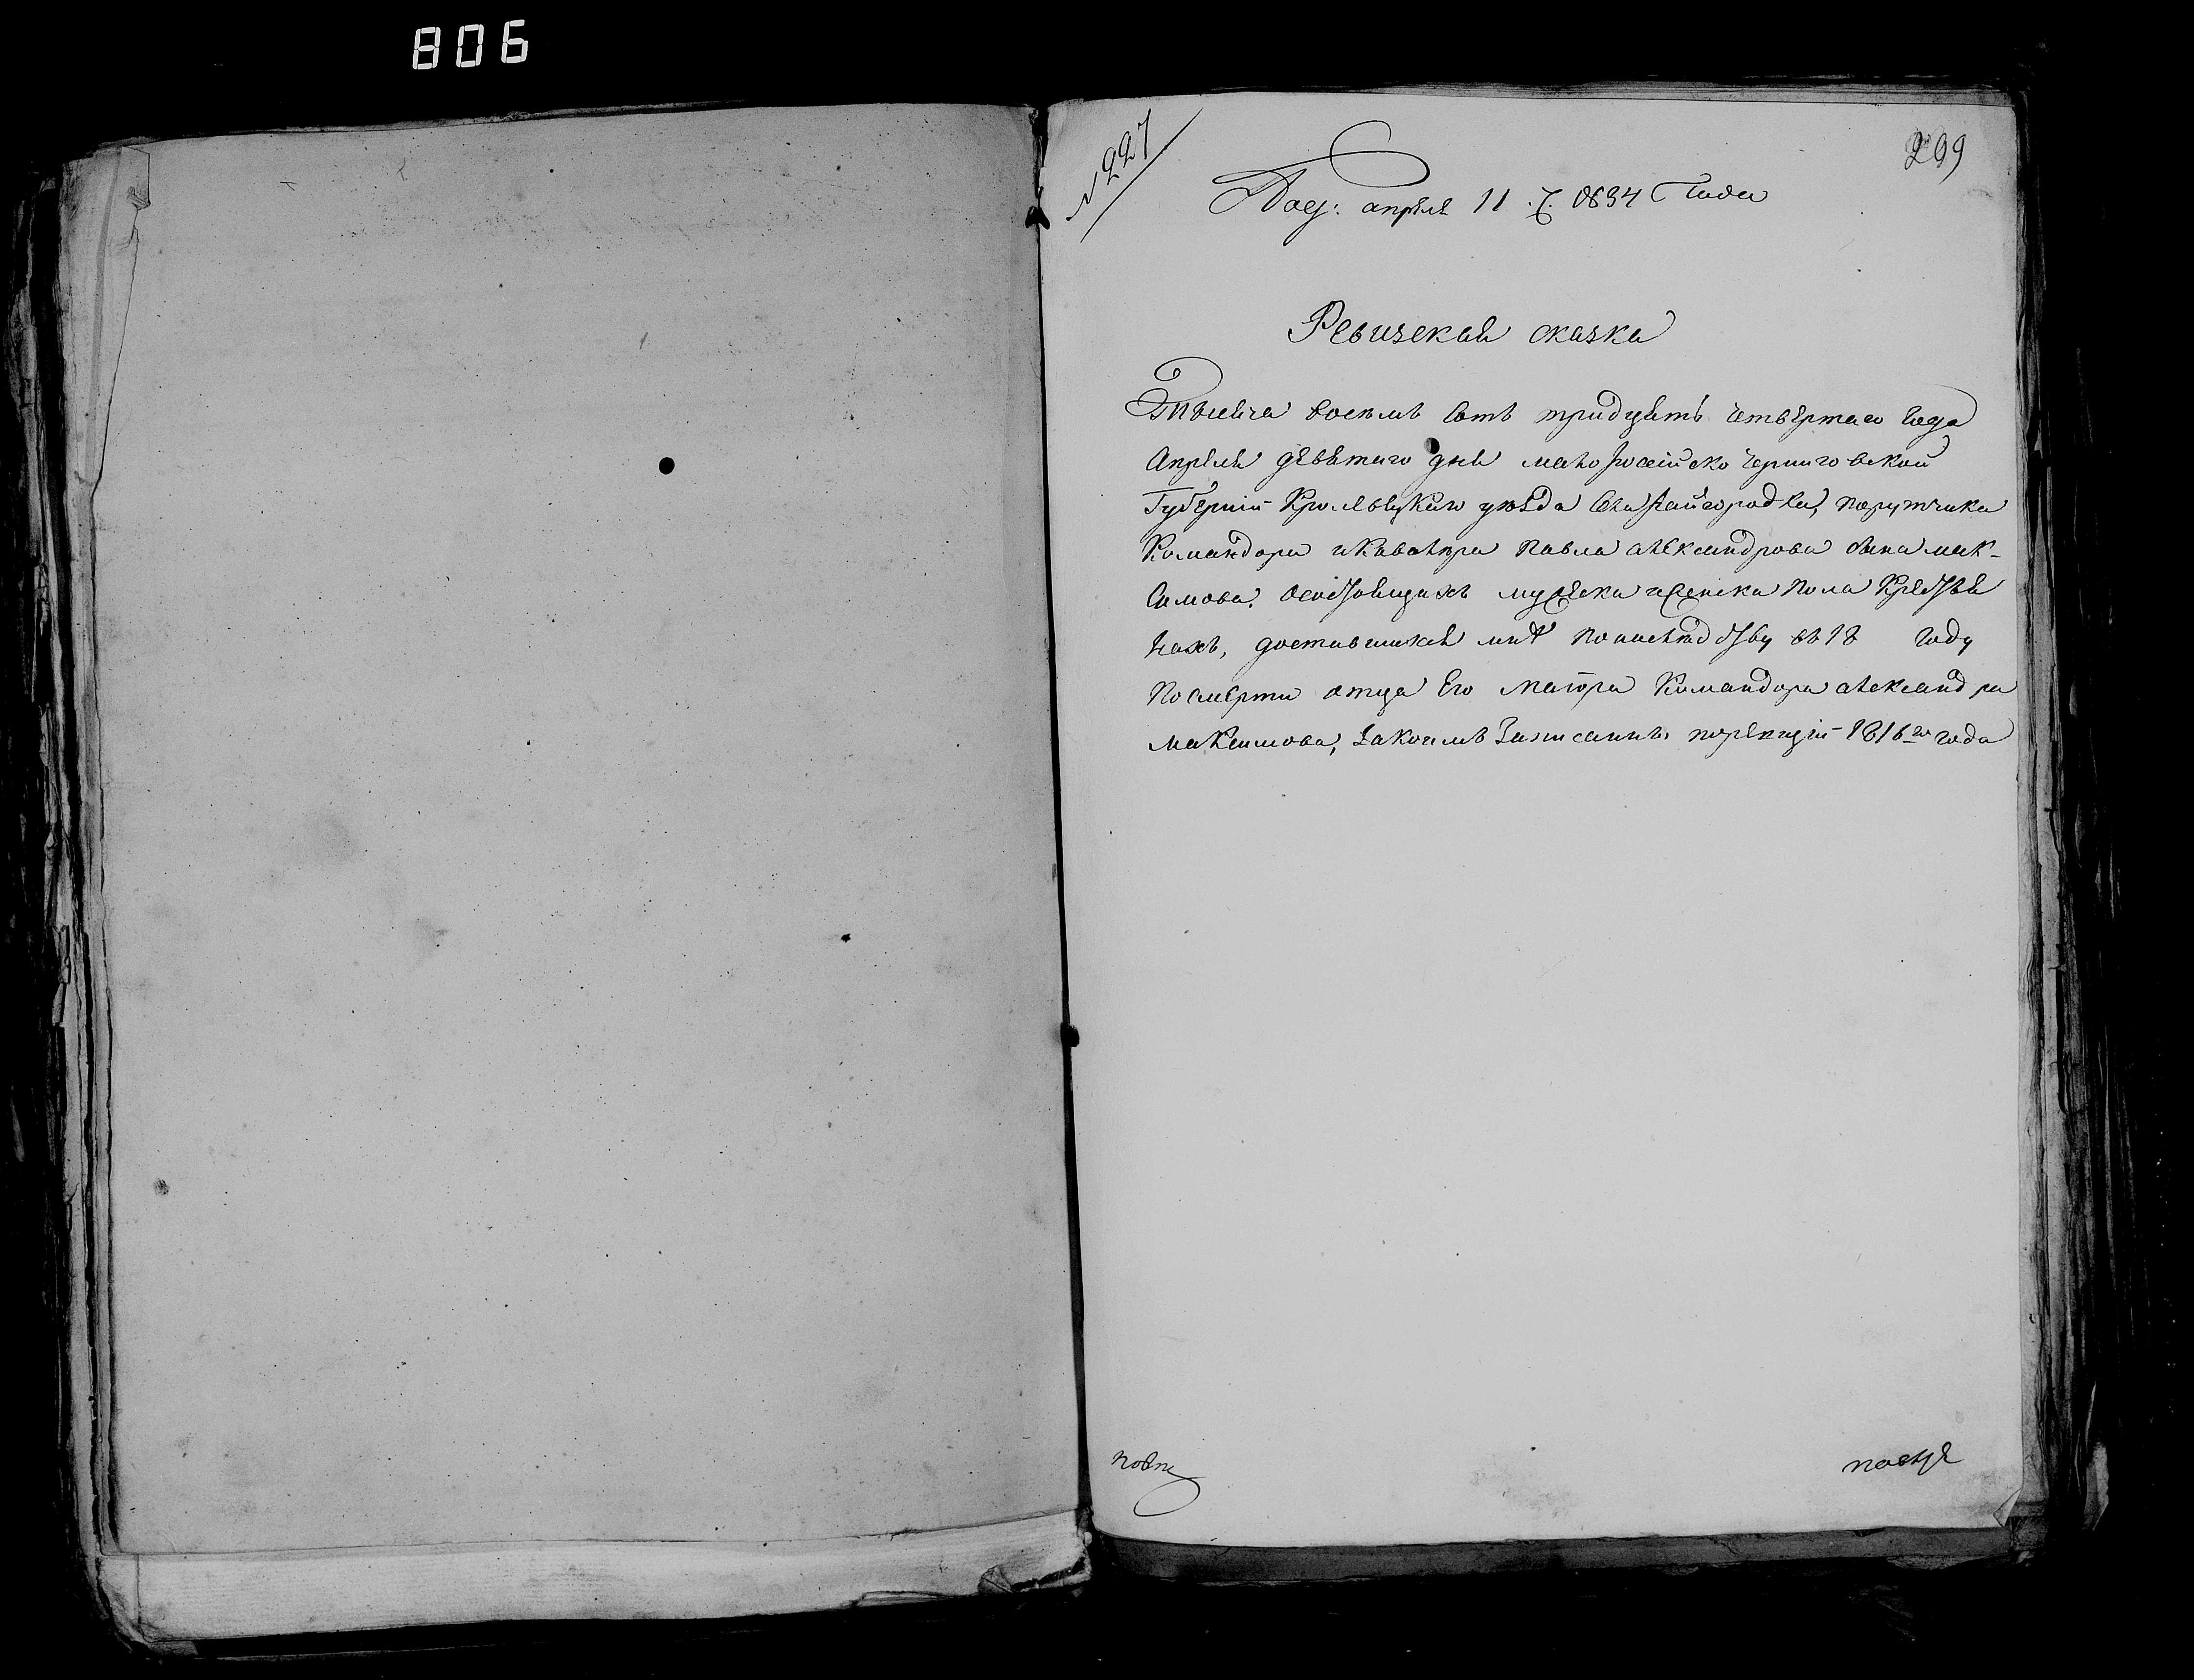 806
№ 227
299
Под: апреля 11 .Ч. 1834 Года
Ревизская сказка
Тысяча восемь сотъ тридцать четвертаго года
Апреля девятаго дня малороссійско Черниговской
Губерніи Кролевецкаго уезда села Райгородка, порутчика
Командора и Кавалера Павла Александрова сына Мак-
симова, о состоящихъ мужеска и женска пола крестья
нахъ, доставшихся мне по наследству въ 18 году
по смерти отца Его Маіора Командора Александра
Максимова, за коимъ записанны по ревизіи 1816го года
после